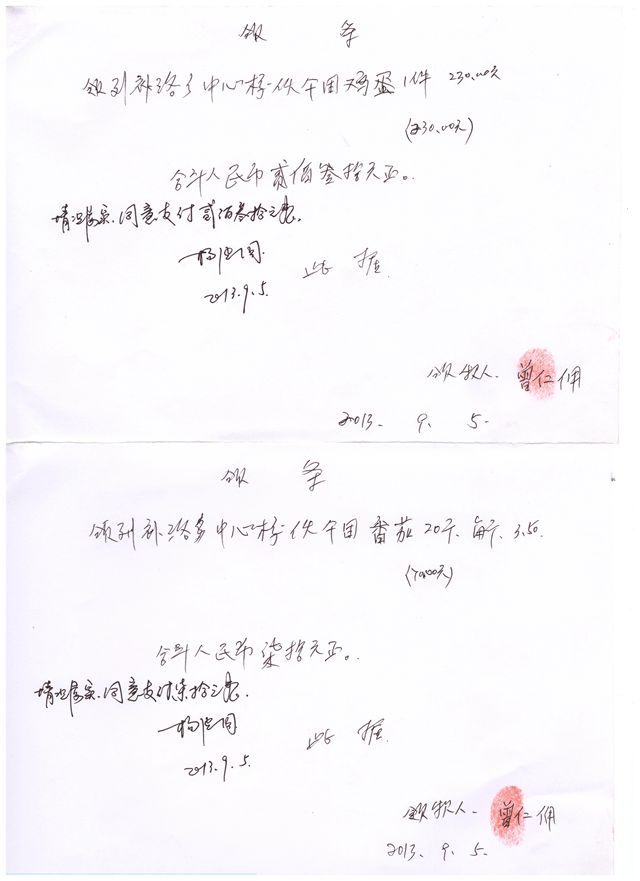 领 条
领到补洛多中心校伙食团鸡蛋1件 230.00元
(230.00元)
合计人民币贰佰叁拾元正。
情况属实.同意支付贰佰叁拾元整.
杨国
2013.9.5.
此 据
领款人. 曾仁佣
2013. 9. 5.
领 条
领到补洛多中心校伙食团番茄20斤. 每斤3.50.
(70.00元)
合计人民币柒拾元正。
情况属实.同意支付柒拾元整.
杨国
2013.9.5.
此 据
领款人. 曾仁佣
2013. 9. 5.